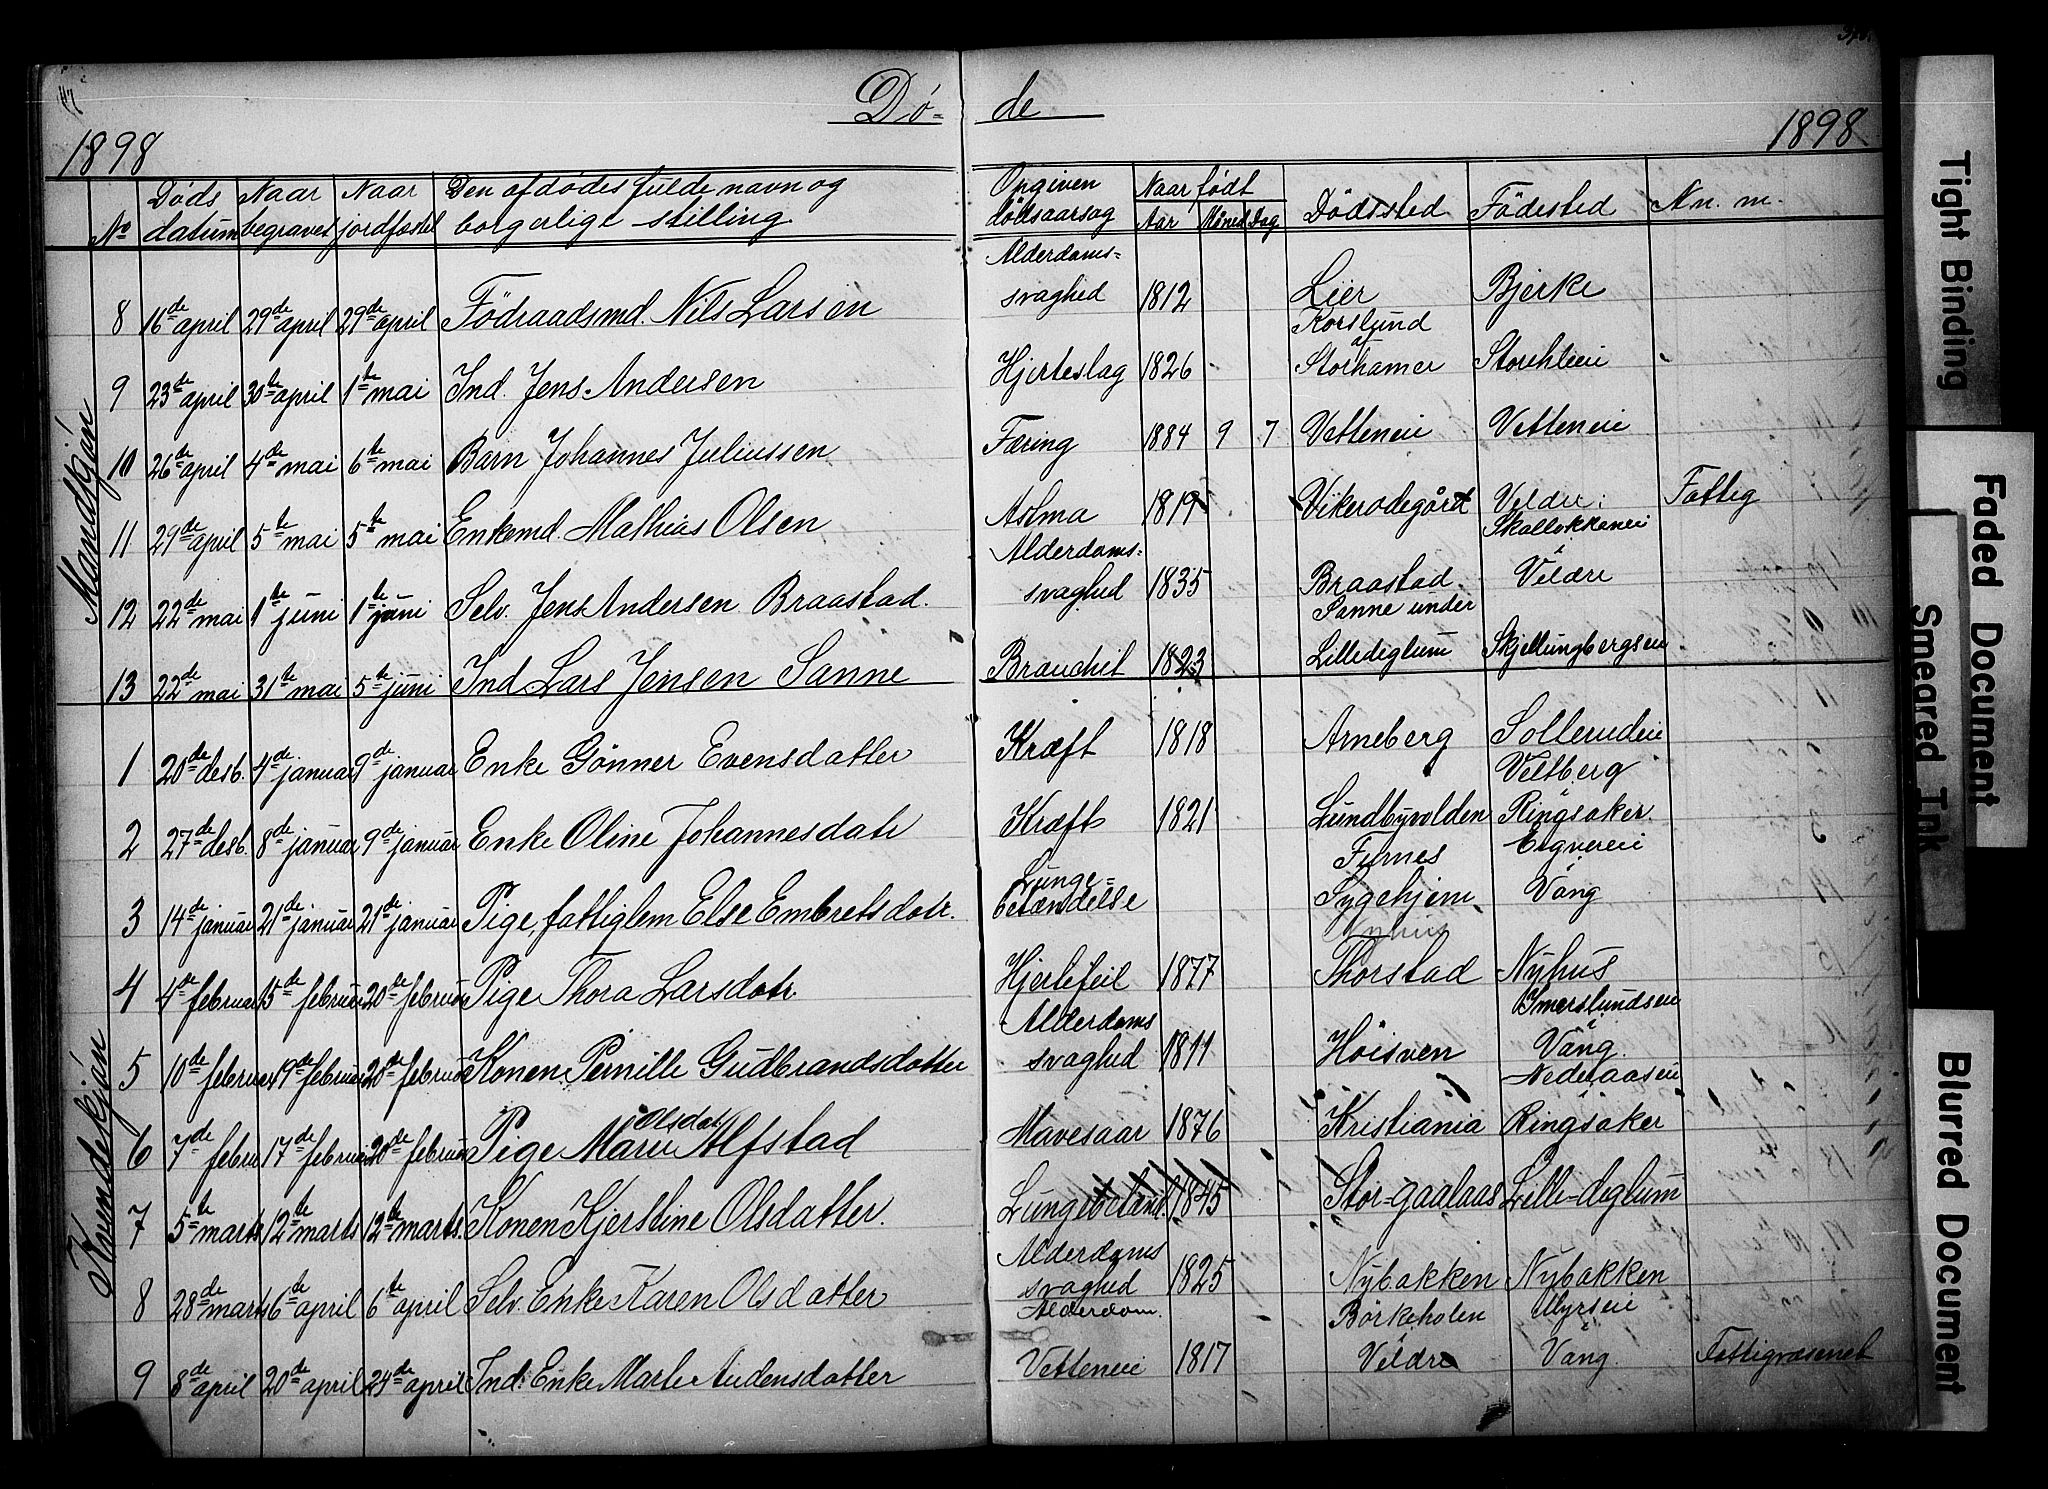 Dø- de
1898 1898
No Døds datum Naar begravet Naar jordfæstet Den afdødes fulde navn og borgerlige stilling Opgiven dödsaarsag Naar født Aar Måned Dag Dødssted Födested An. m.
Mandkjón
8 16de april 29de april 29de april Födraadsmd. Nils Larsen Alderdoms= svaghed 1812 Lier Bjerke
9 23de april 30te april 1te mai Ind. Jens Andersen Hjerteslag 1826 Korslund af Storhamer Storihleiei
10 26de april 4de mai 6te mai Barn Johannes Juliussen Færing 1884 9 7 Vetteneie Vetteneie
11 29de april 5te mai 5te mai Enkemd. Mathias Olsen Astma 1819 Vikerødegård Veldre: Skallokkeneie Fattig
12 22de mai 1te juni 1te juni Selv. Jens Andersen Braastad. Alderdoms= svaghed 1835 Braastad Veldre
13 22de mai 31te mai 5te juni Ind Lars Jensen Sanne Brauchit 1823 Sanne under Lilledeglum Skjellungbergseie
Kvindekjón
1 20de desb. 4de januar 9de januar Enke Gønner Evensdatter Kræft 1818 Arneberg Sollerudeie
2 27de desb. 8de januar 9de januar Enke Oline Johannesdatr Kræft 1821 Lundbyvolden Furnes Veltberg Ringsaker.
3 14de januar 21de januar 21de januar Pige, fattiglem Else Embretsdatr. Lunge= betændelse Sygehjem Nyhus Ergvereie Vang
4 4de februar 15de februar 20de februar Pige Thora Larsdatr. Hjertefeil 1877 Thorstad Nyhus
5 10de februar 19de februar 20de februar Konen Pernille Gudbrandsdatter Alderdoms svaghed 1811 Höisven Imerslundseie Vang.
6 7de febru 17de februar 20de februar Pige Marie Olsdat Alfstad Mavesaar 1876 Kristiania Nederaaseie Ringsaker
7 5te marts 12te marts 12te marts. Konen Kjerstine Olsdatter. Lungebetænd. 1845 Stor-gaalaas Lille-deglum
8 28de marts 6te april 6te april Selv. Enke Karen Olsdatter Alderdoms svaghed 1825 Nybakken Nybakken
9 8de april 20de april 24de april Ind. Enke Marte Audensdatter Alderdom. Vetteneie 1817 Börkeholen Veldre Myrseie Vang. Fattigvæsenet
Tight Binding
Faded Document
Smeared Ink
Blurred Document